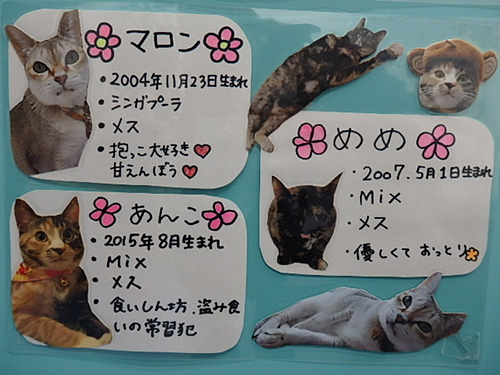 マロン
・2004年11月23日生まれ
・シンガプーラ
・メス
・抱っこ大好き
甘えんぼう
めめ
・2007.5月1日生まれ
・Mix
・メス
・優しくておっとり
あんこ
・2015年8月生まれ
・Mix
・メス
・食いしん坊、盗み食
いの常習犯